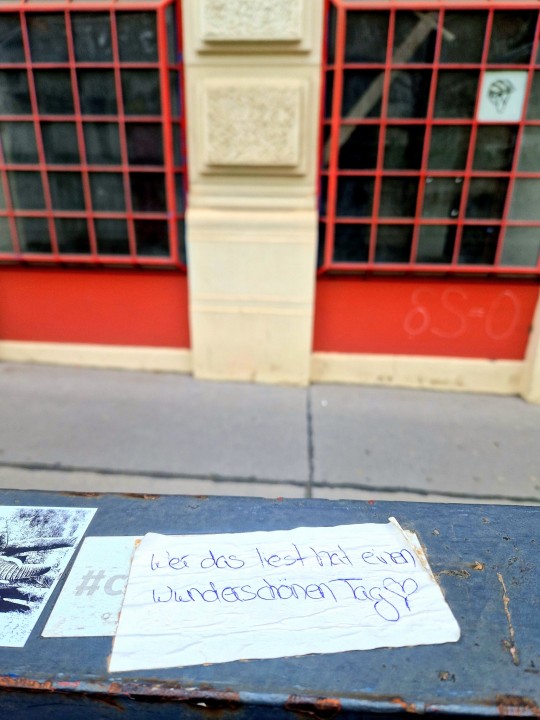 Wer das lest hat einen
wunderschönen Tag♡
#c